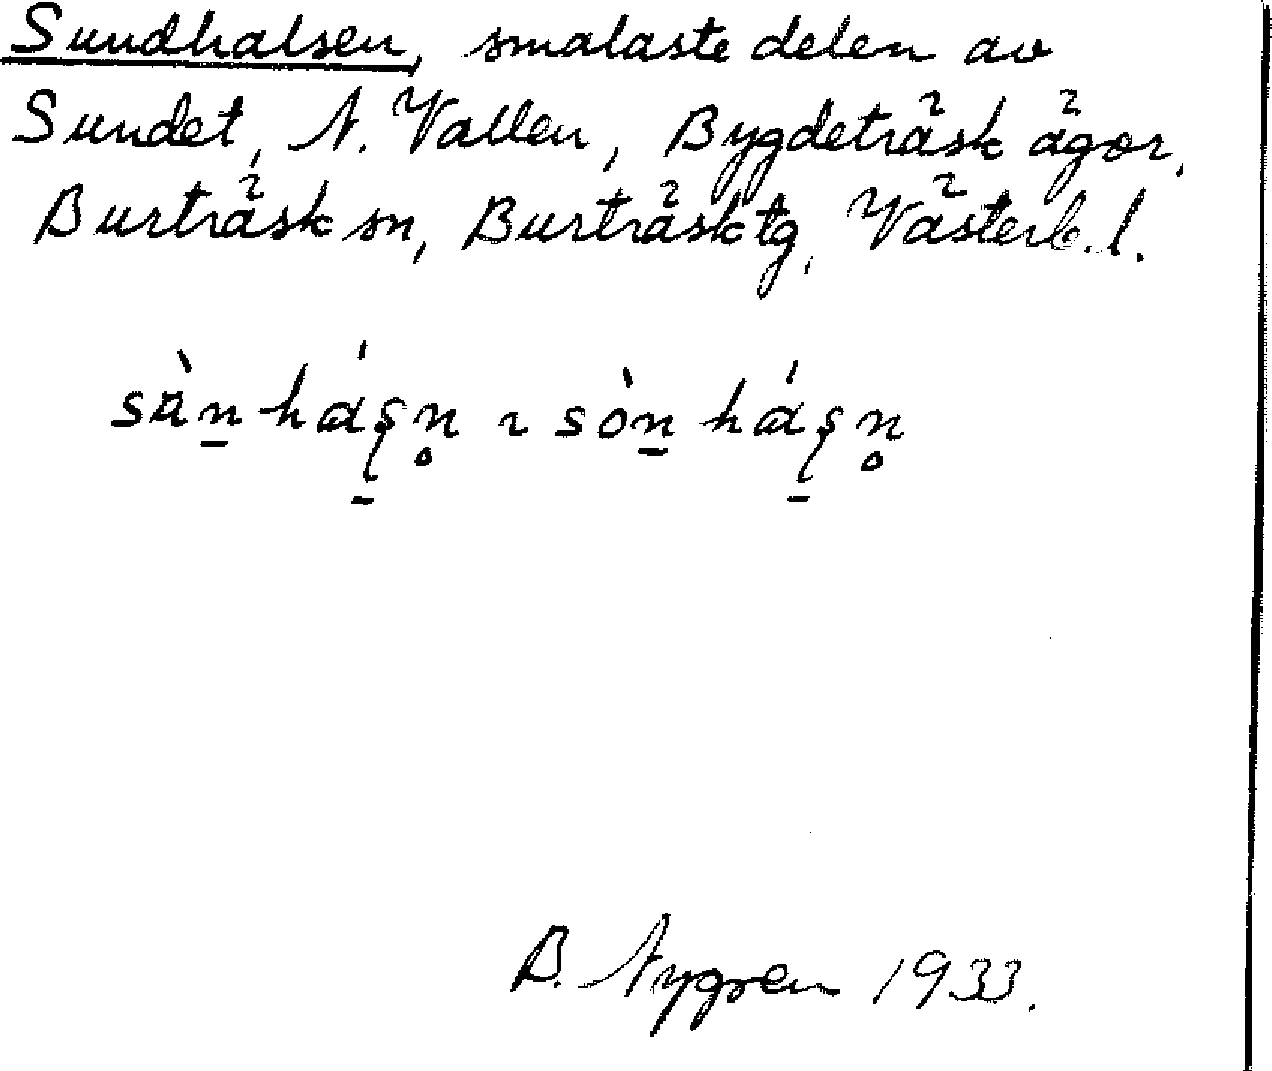 Sundhalsen, smalaste delen av
Sundet, N. Vallen, Bygdeträsk ägor,
Burträsk sn, Burträsk tg, Västerb. l.
B. Nygren 1933.